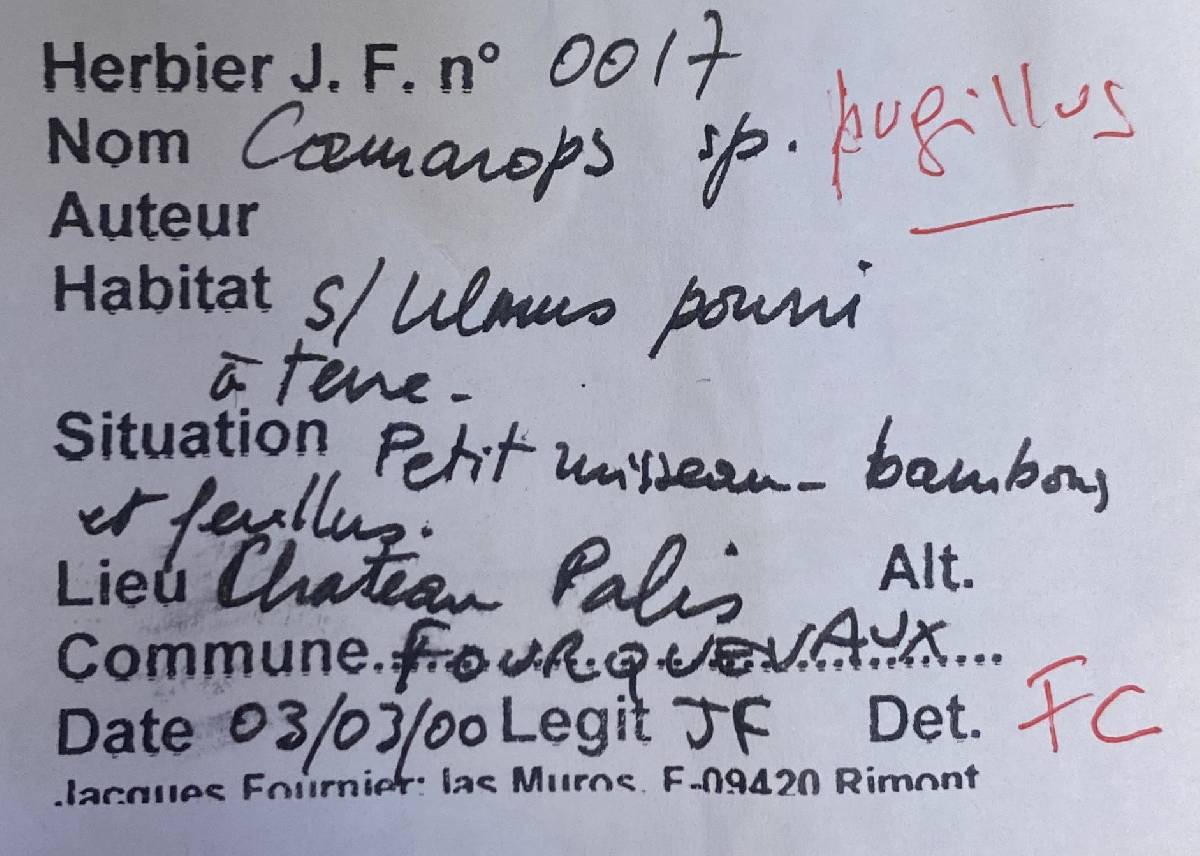 Herbier J. F. n° 0017
Nom Camarops sp. pugillus
Auteur
Habitat s/ Ulmus pourri
à terre.
Situation Petit ruisseau - bambous
et feuillus.
Lieu Chateau Palis Alt.
Commune. FOURQUEVAUX...
Date 03/03/00 Legit JF Det. FC
Jacques Fournier: las Muros. F-09420 Rimont